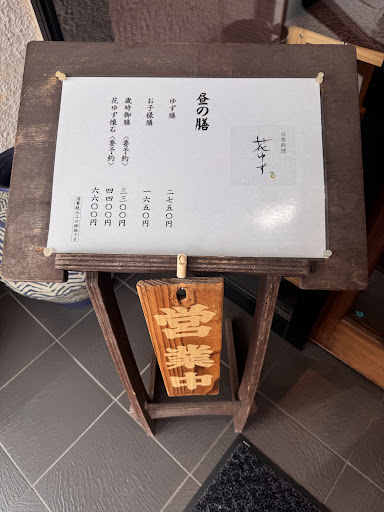 日本料理
花ゆず
昼の膳
ゆず膳 二七五〇円
お子様膳 一六五〇円
歳時御膳〈要予約〉 三三〇〇円
花ゆず懐石〈要予約〉 四四〇〇円
六六〇〇円
消費税込みの価格です
営業中